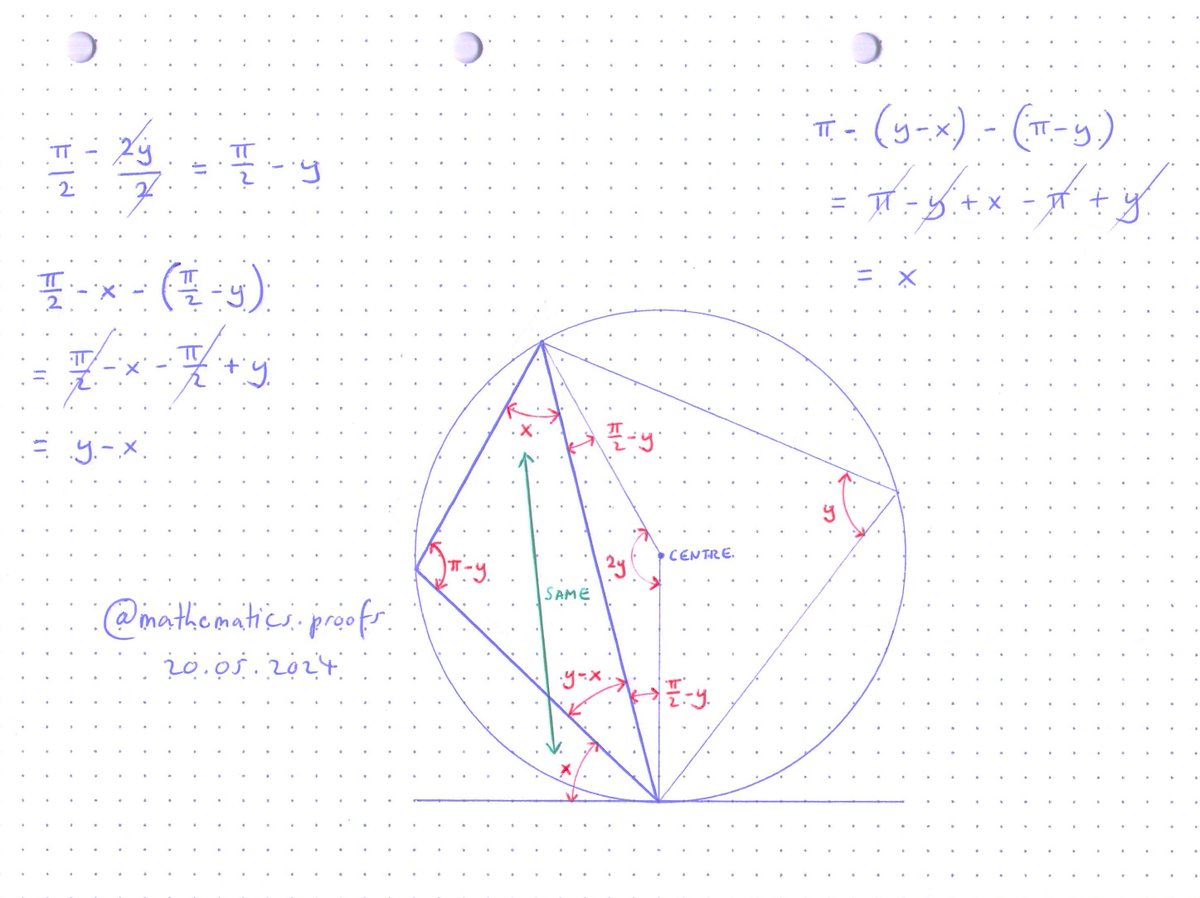 π/2 - 2y/2 = π/2 - y
π/2 - x - (π/2 - y)
= π/2 - x - π/2 + y
= y - x
π - (y-x) - (π-y)
= π - y + x - π + y
= x
x
π/2 - y
y
π-y
2y
CENTRE.
SAME
@mathematics.proofs
20.05.2024
y-x
π/2 - y
x